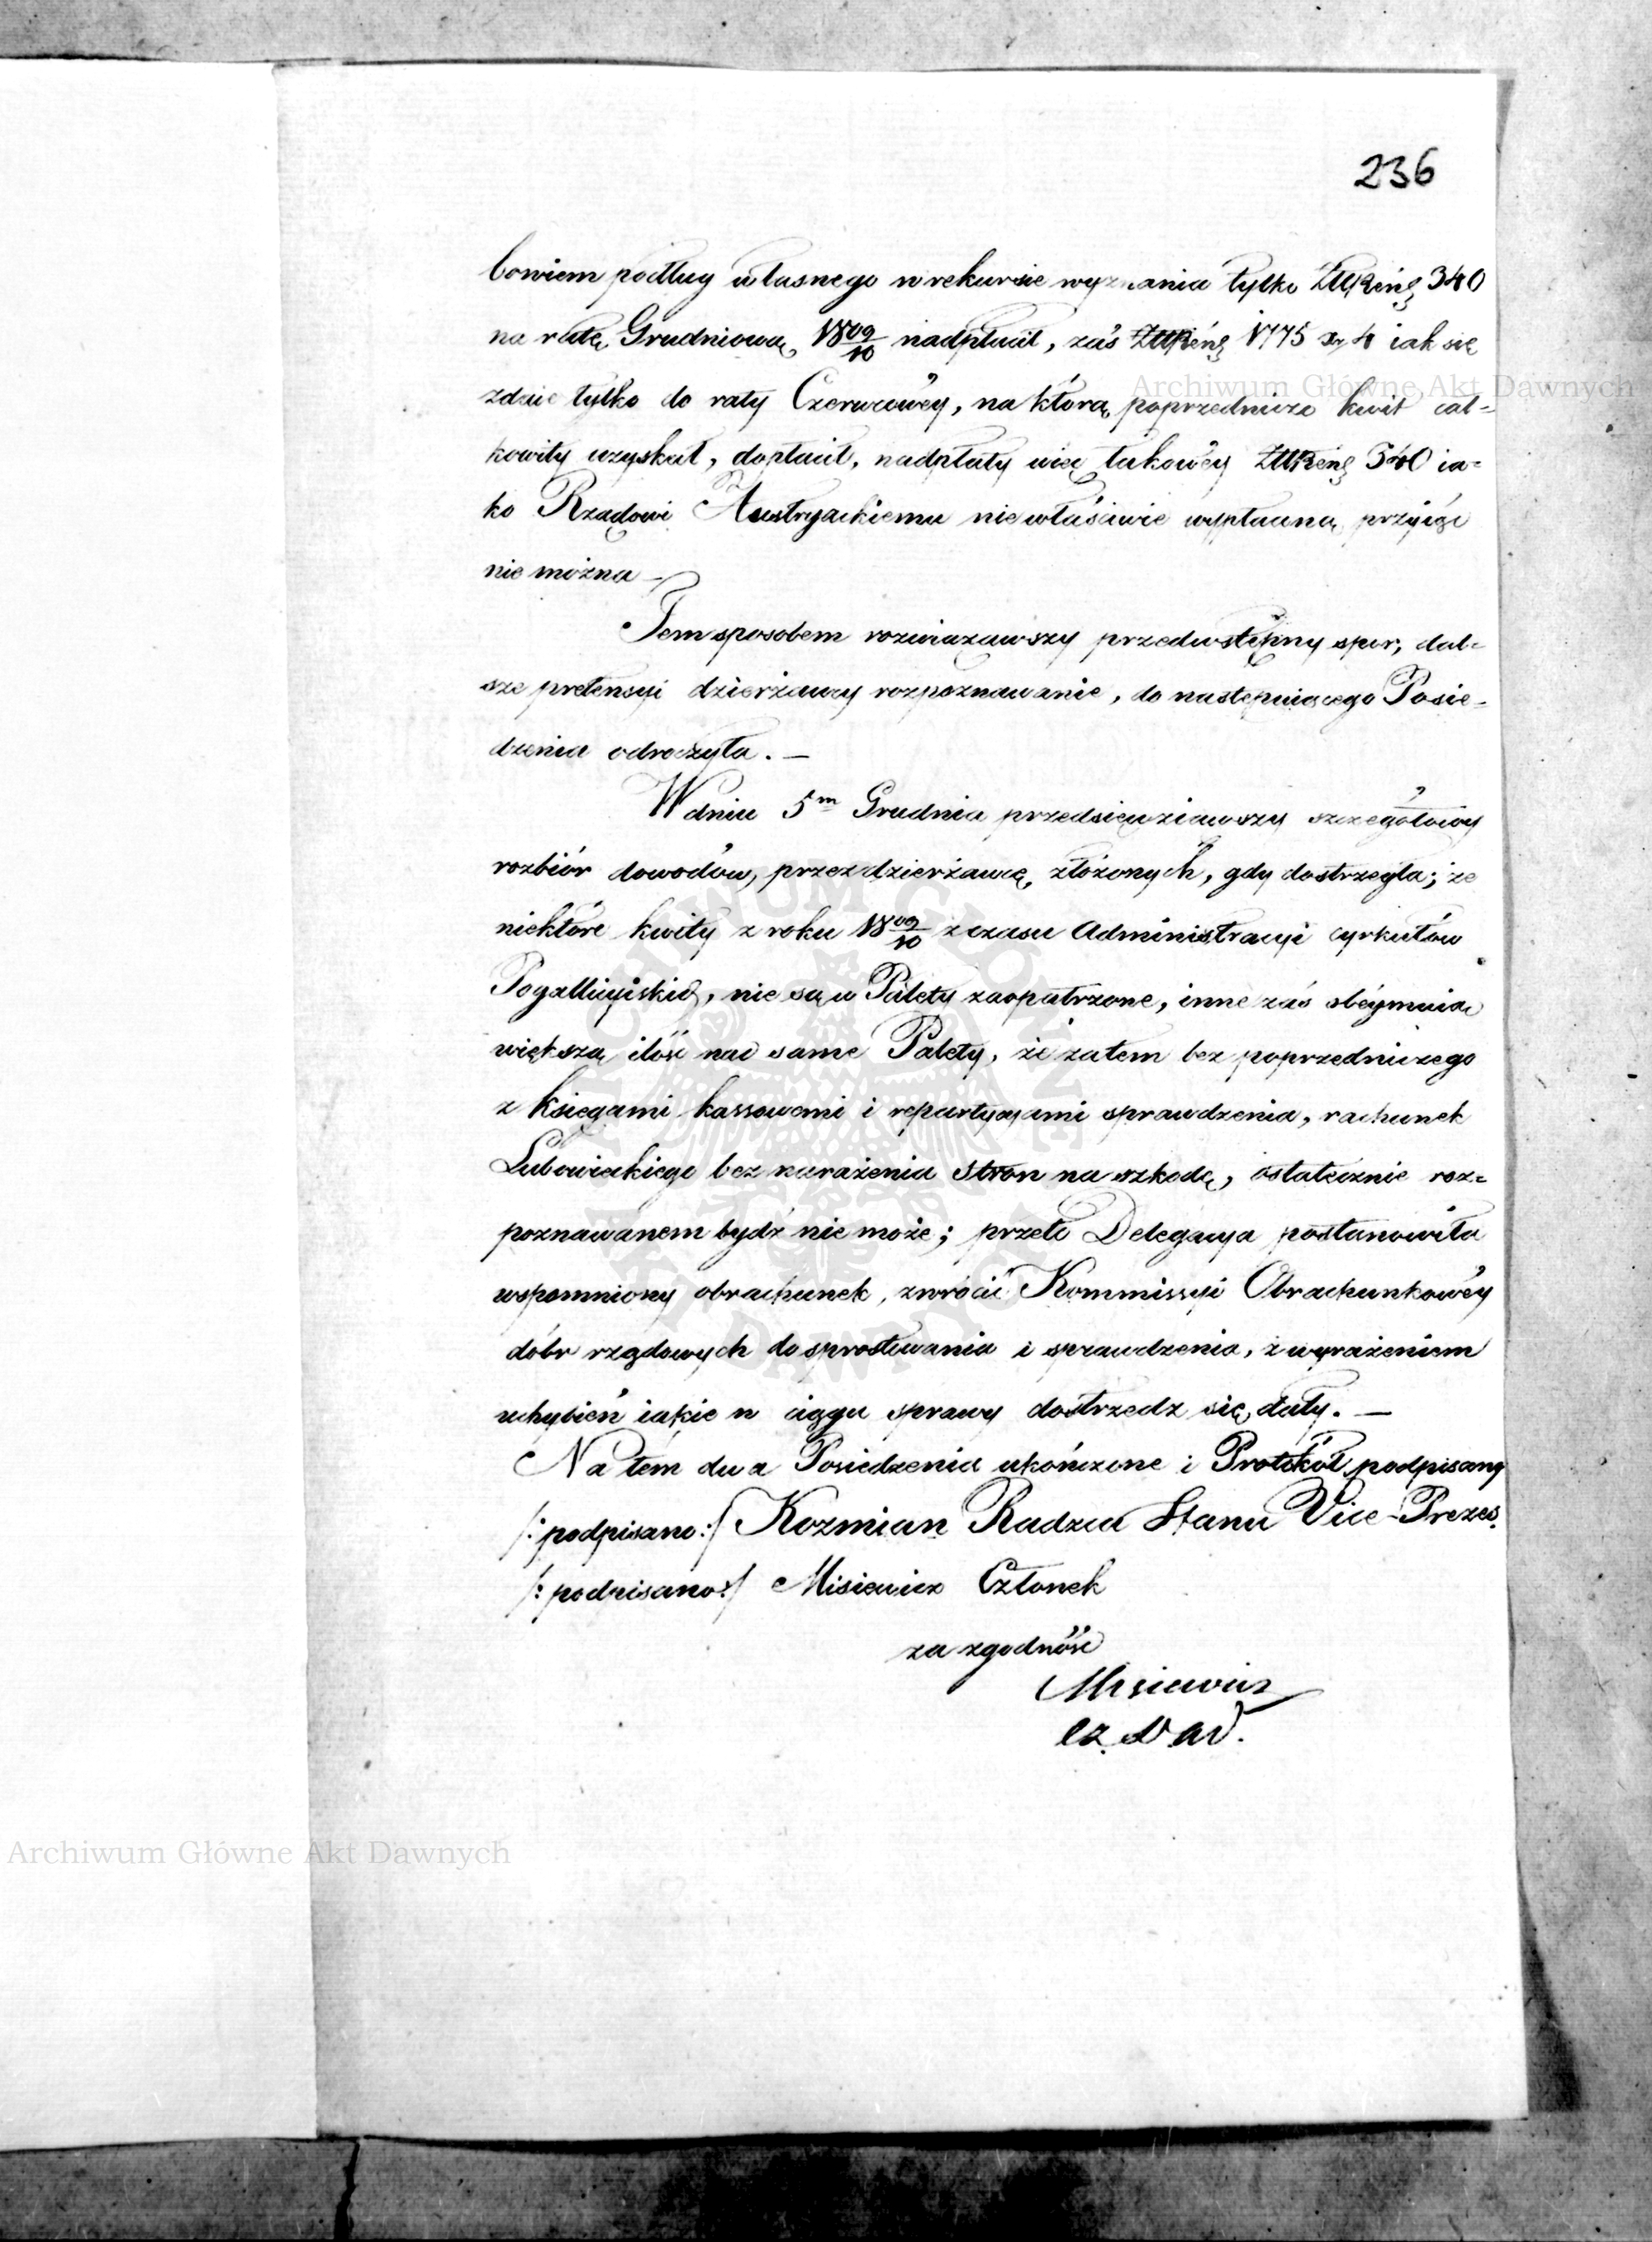 236
bowiem podług własnego w rekursie wyznania tylko 340
na ratę Grudniową 18 09/10 nadpłacił, zaś 1775 4 iak się
zdaie tylko do raty Czerwcowéy, na którą poprzedniczo kwit cał=
kowity uzyskał, dopłacił, nadpłaty więc takowéy 340 ia=
ko Rządowi Austryackiemu niewłaściwie wypłaconą przyiąć
nie można —
Tem sposobem rozwiązawszy przedwstępny spór, dal=
sze pretensyi dzierżawcy rozpoznawanie, do następuiącego Posie=
dzenia odroczyła. —
W dniu 5m Grudnia przedsięwziąwszy szczegółowy
rozbiór dowodów, przez dzierżawcę, złożonych, gdy dostrzegła; że
niektóre kwity z roku 18 09/10 z czasu Administracyi cyrkułów
Pogallicyiskich, nie są w Palety zaopatrzone, inne zaś obéymuią
większą ilość nad same Palety, że zatem bez poprzedniczego
z księgami kassowemi i repartycyami sprawdzenia, rachunek
Lubowieckiego bez narażenia stron na szkodę, ostatecznie roz=
poznawanem bydź nie może; przeto Delegacya postanowiła
wspomniony obrachunek, zwrócić Kommissyi Obrachunkowéy
dóbr rządowych do sprostowania i sprawdzenia, z wyrażeniem
uchybień iakie w ciągu sprawy dostrzedz się dały. —
Na tém dwa Posiedzenia ukończone i Protókół podpisany
/: podpisano :/ Kozmian Radzca Stanu Vice-Prezes
/: podpisano :/ Misiewicz Członek
za zgodność
Misiewicz
Archiwum Główne Akt Dawnych
Archiwum Główne Akt Dawnych
ARCHIWUM GŁÓWNE AKT DAWNYCH